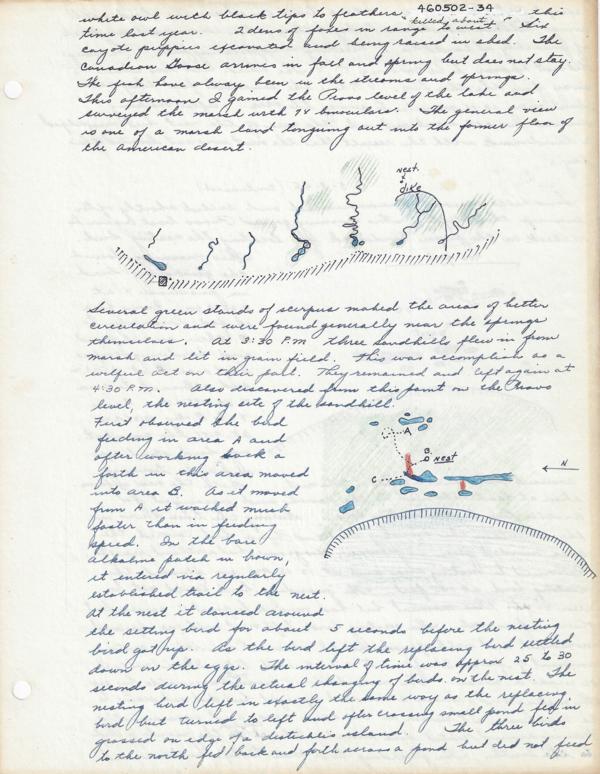 460502-34
white owl with black tips to feathers "killed about" this
time last year. 2 dens of foxes in range to west. Six
coyote puppies excavated and being raised in shed. The
Canadian Goose arrives in fall and spring but does not stay.
The fish have always been in the streams and springs.
This afternoon I gained the Provo level of the lake and
surveyed the marsh with 7x binoculars. The general view
is one of a marsh land tonguing out into the former floor of
the american desert.
nest
dike
Several green stands of scirpus maked the areas of better
circulation and were found generally near the springs
themselves. At 3:30 P.M. three sandhills flew in from
marsh and lit in grain field. This was accomplish as a
wilful act on their part. They remained and left again at
4:30 P.M. Also discovered from this point on the Provo
level, the nesting site of the sandhill.
First observed the bird
feeding in area A and
after working back &
forth in this area moved
into area B. As it moved
from A it walked much
faster than in feeding
speed. In the bare
alkaline patch in brown,
it entered via regularly
established trail to the nest.
At the nest it danced around
A
B.
Nest
C
N
the setting bird for about 5 seconds before the nesting
bird got up. As the bird left the replacing bird settled
down on the eggs. The interval of time was approx 25 to 30
seconds during the actual changing of birds on the nest. The
nesting bird left in exactly the same way as the replacing
bird but turned to left and after crossing small pond fed in
grassed on edge of a distichlis island. The three birds
to the north fed back and forth across a pond but did not feed